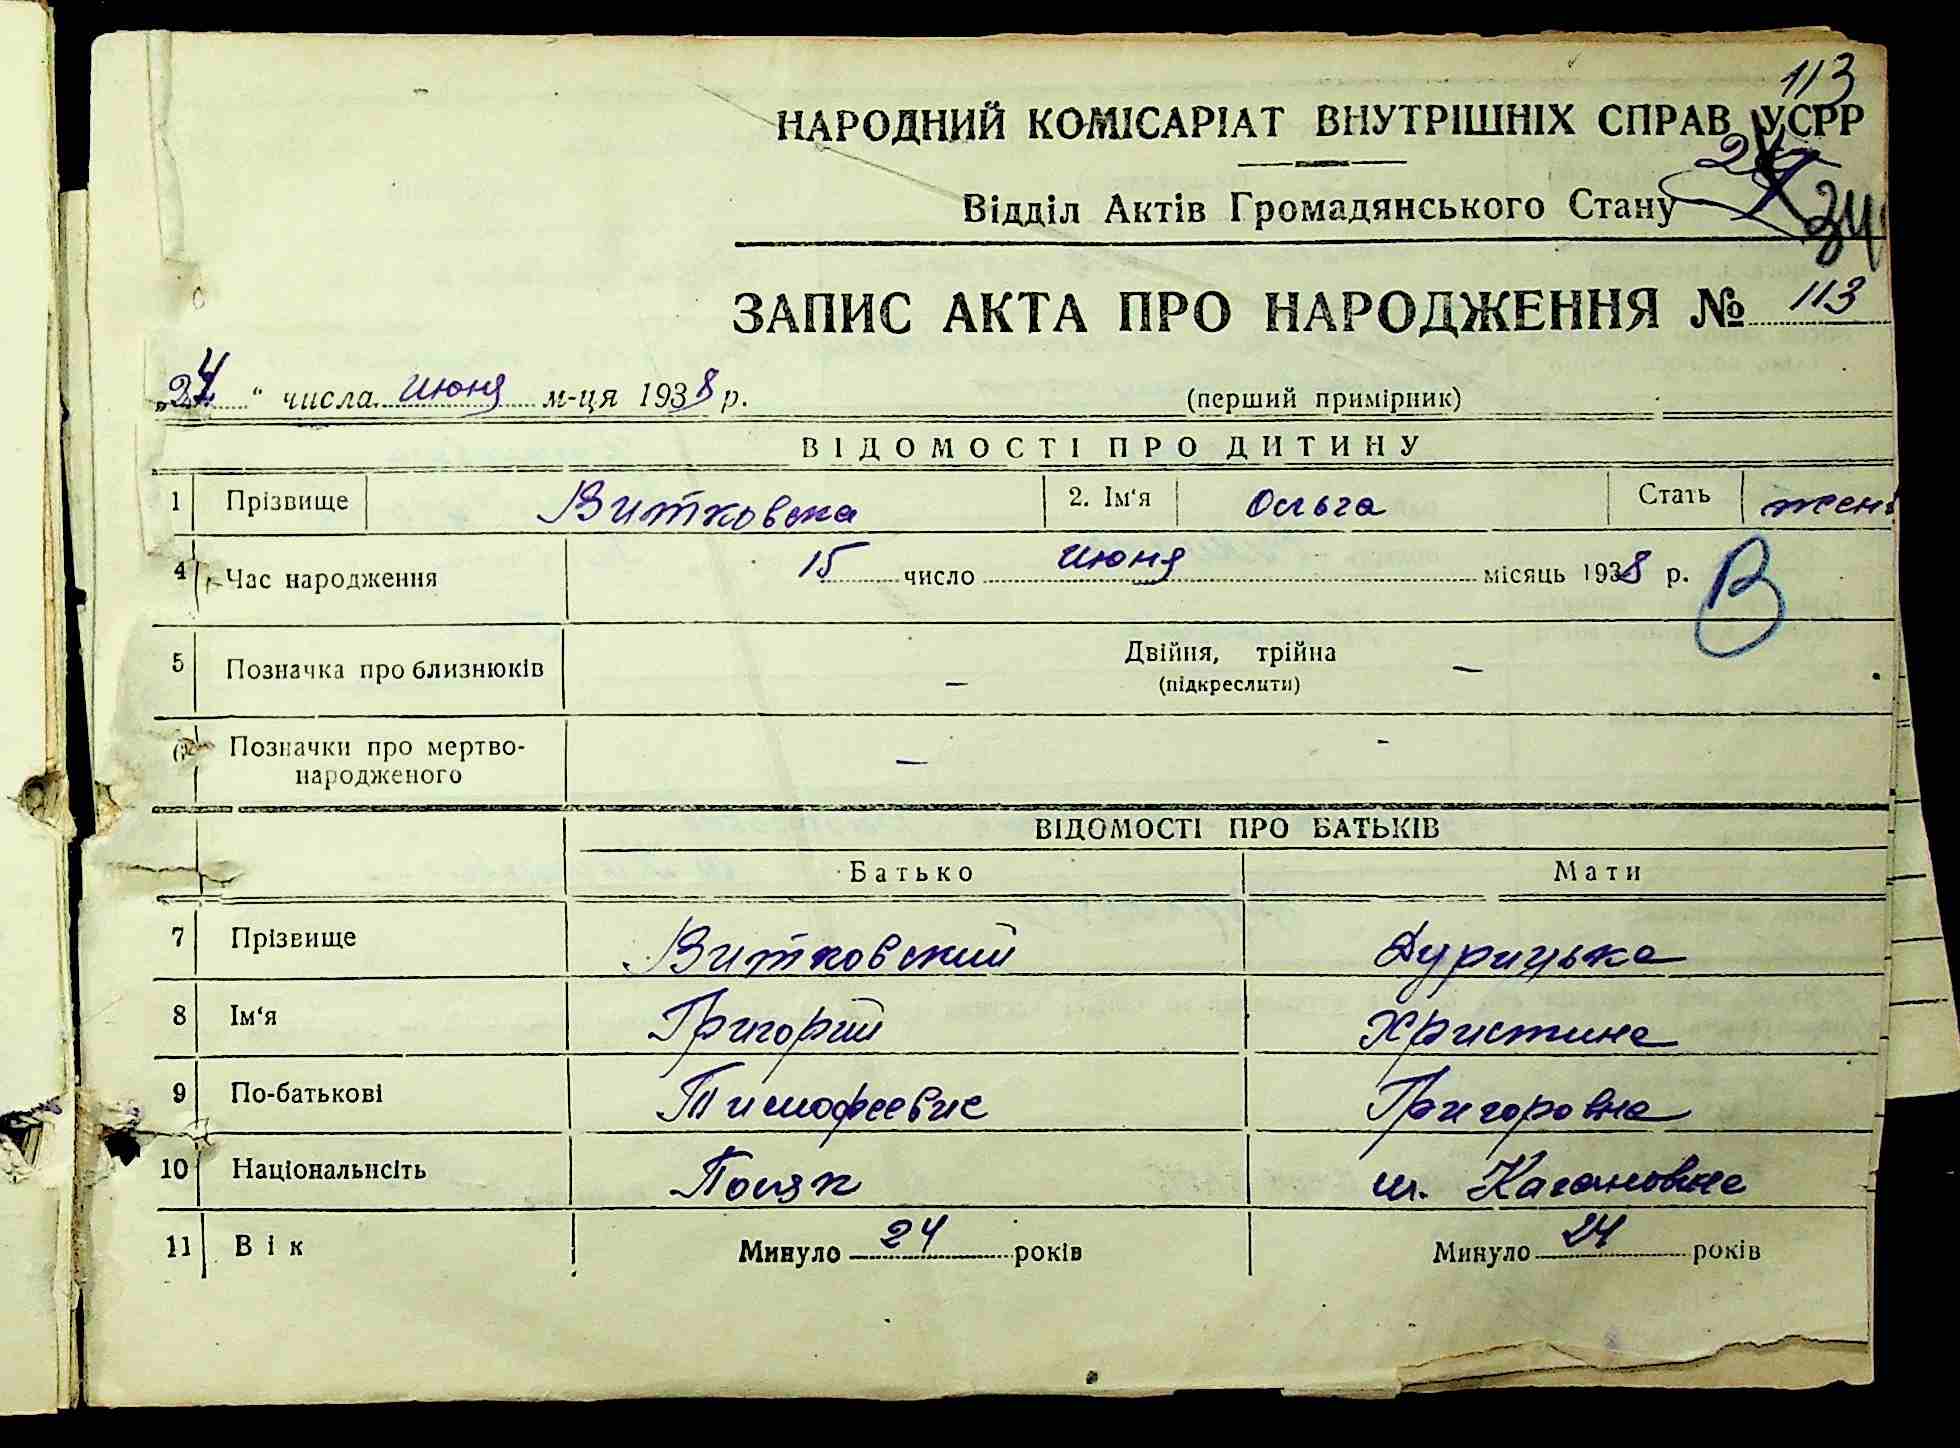 113
НАРОДНИЙ КОМІСАРІАТ ВНУТРІШНІХ СПРАВ УСРР
Відділ Актів Громадянського Стану
ЗАПИС АКТА ПРО НАРОДЖЕННЯ № 113
„24“ числа июня м-ця 1938 р. (перший примірник)
ВІДОМОСТІ ПРО ДИТИНУ
1 Прізвище Витковска 2. Ім'я Ольга Стать жен
4 Час народження 15 число июня місяць 1938 р.
В
5 Позначка про близнюків – Двійня, трійна –
(підкреслити)
6 Позначки про мертво- – -
народженого
ВІДОМОСТІ ПРО БАТЬКІВ
Батько Мати
7 Прізвище Витковский Дурицька
8 Ім'я Григорий Христина
9 По-батькові Тимофеевич Григоровна
10 Національність Поляк
11 Вік Минуло 24 років Минуло 24 років